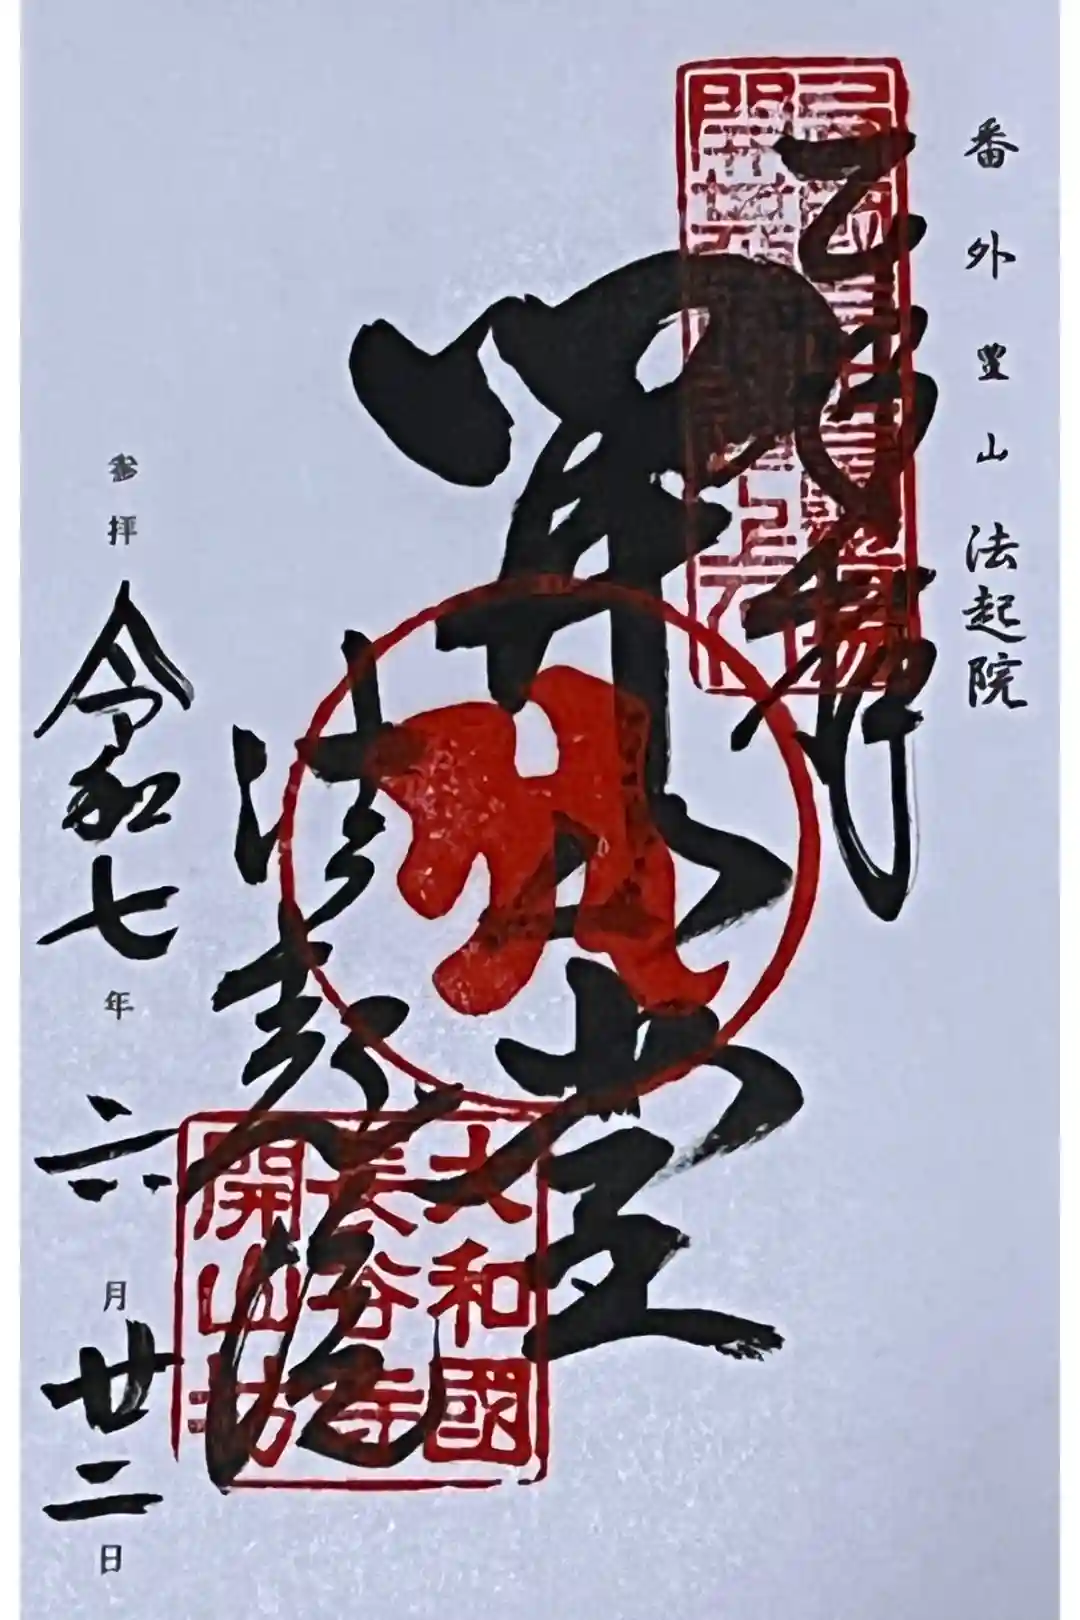 番外 豊山 法起院
開山堂
法起院
大和國
長谷寺
開山坊
参拝 令和七年六月廿二日